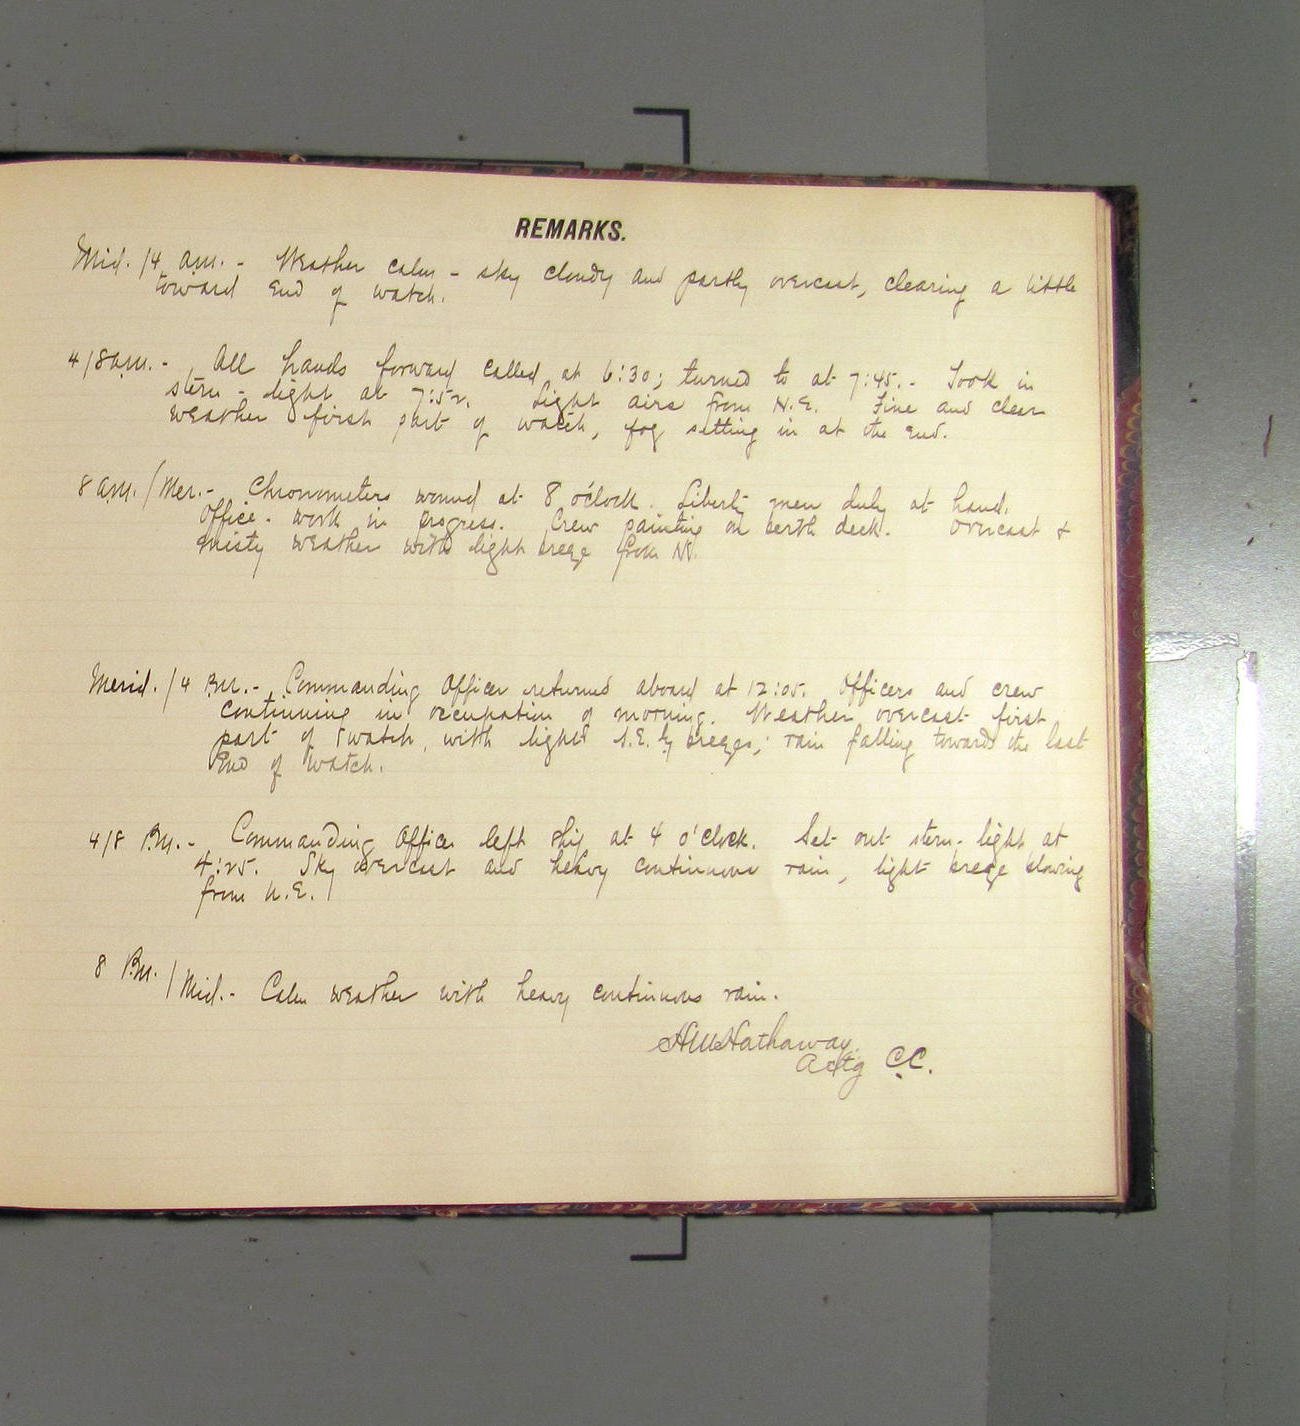 REMARKS.
Mid. /4 a.m. - Weather calm - sky cloudy and partly overcast, clearing a little
toward end of watch.
4/8 a.m. - All hands forward called at 6:30; turned to at 7:45. - Took in
stern - light at 7:52. Light airs from N.E. Fine and clear
weather first part of watch, fog setting in at the end.
8 a.m. / Mer. - Chronometers wound at 8 o'clock. Liberty men duly at hand.
Office - work in progress. Crew painting on berth deck. Overcast &
misty weather with light breeze from N.
Merid. /4 P.M. - Commanding Officer returned aboard at 12:05. Officers and crew
continuing in occupation of morning. Weather overcast first
part of watch, with light N.E.ly breezes; rain falling towards the last
end of watch.
4/8 P.M. - Commanding Officer left ship at 4 o'clock. Set out stern - light at
4:25. Sky overcast and heavy continuous rain, light breeze blowing
from N.E.
8 P.M. / Mid. - Calm weather with heavy continuous rain.
HWHathaway.
Actg C.C.